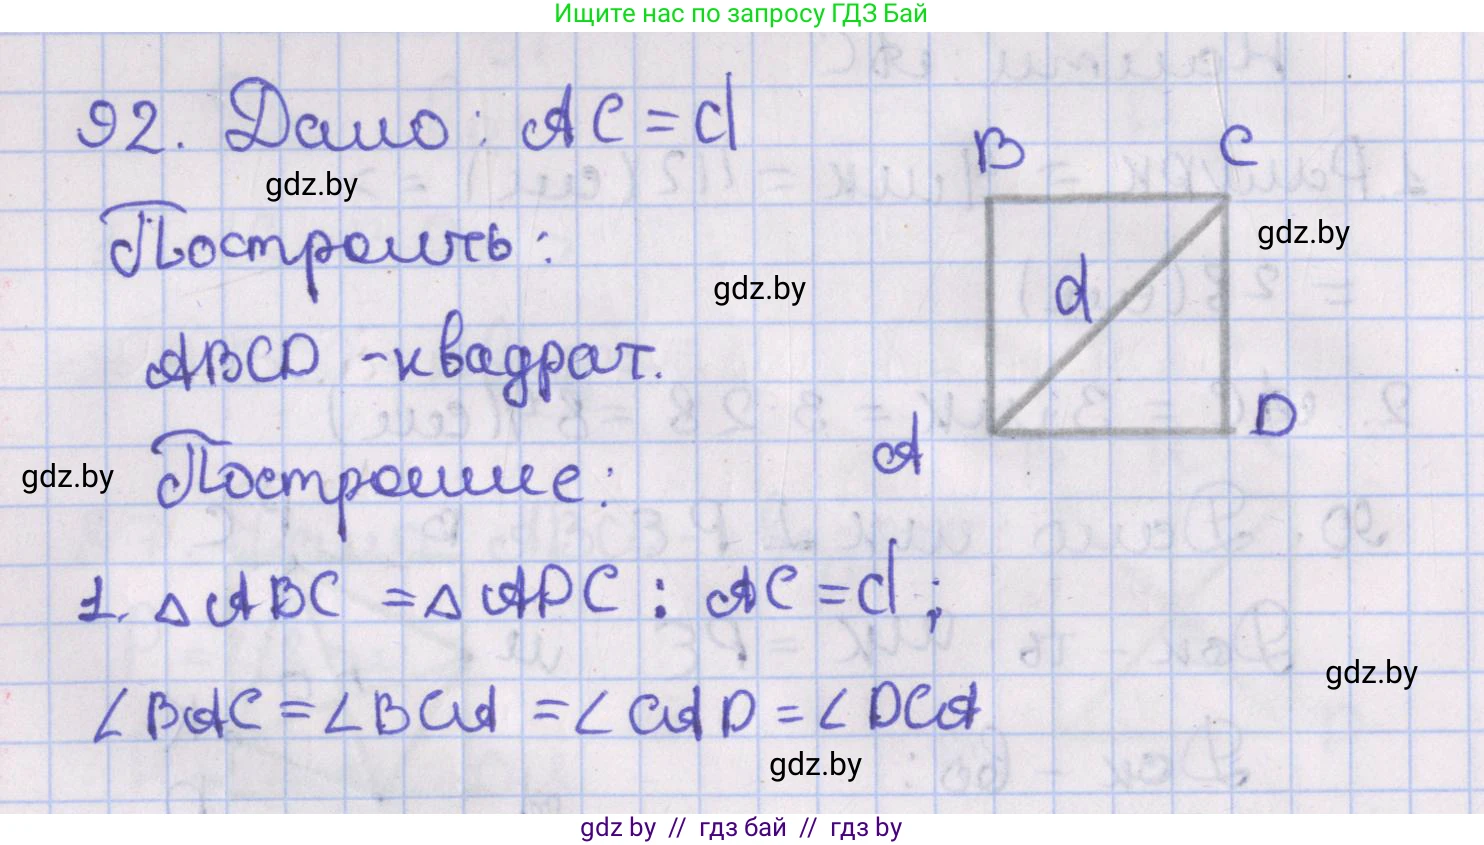 Ищите нас по запросу ГДЗ Бай
92. Дано: AC = d
gdz.by
B C
Построить:
gdz.by
gdz.by
d
ABCD - квадрат.
D
A
gdz.by
Построение:
1. △ABC = △ADC : AC = d;
gdz.by
∠BAC = ∠BCA = ∠CAD = ∠DCA
gdz.by
gdz by // гдз бай // гдз by